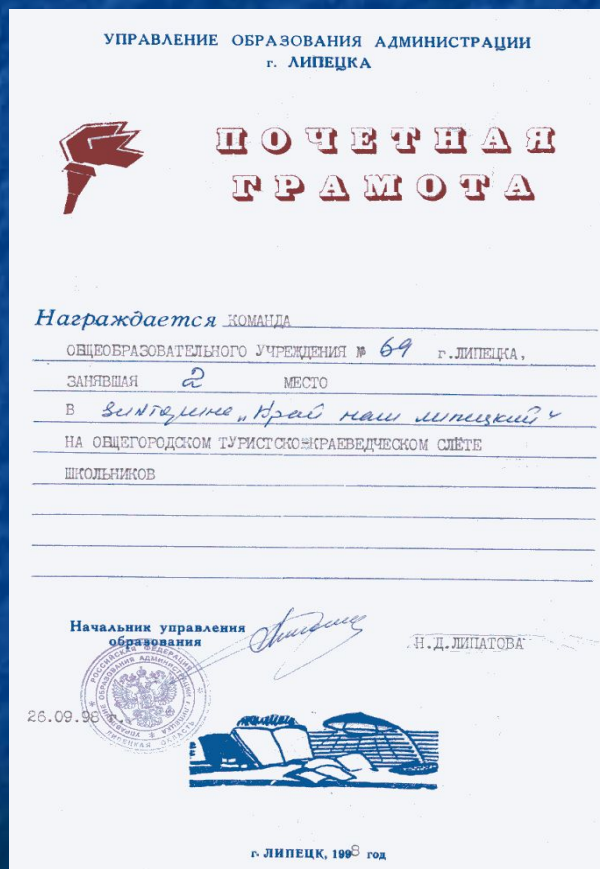 УПРАВЛЕНИЕ ОБРАЗОВАНИЯ АДМИНИСТРАЦИИ
г. ЛИПЕЦКА
ПОЧЕТНАЯ
ГРАМОТА
Награждается КОМАНДА
ОБЩЕОБРАЗОВАТЕЛЬНОГО УЧРЕЖДЕНИЯ № 69 г.ЛИПЕЦКА,
ЗАНЯВШАЯ 2 МЕСТО
В викторине „Край наш липецкий“
НА ОБЩЕГОРОДСКОМ ТУРИСТСКО-КРАЕВЕДЧЕСКОМ СЛЁТЕ
ШКОЛЬНИКОВ
Начальник управления
образования
Н.Д.ЛИПАТОВА
РОССИЙСКАЯ ФЕДЕРАЦИЯ
УПРАВЛЕНИЕ ОБРАЗОВАНИЯ АДМИНИСТРАЦИИ г. ЛИПЕЦКА
ЛИПЕЦКАЯ ОБЛАСТЬ
26.09.98 г.
г. ЛИПЕЦК, 1998 год